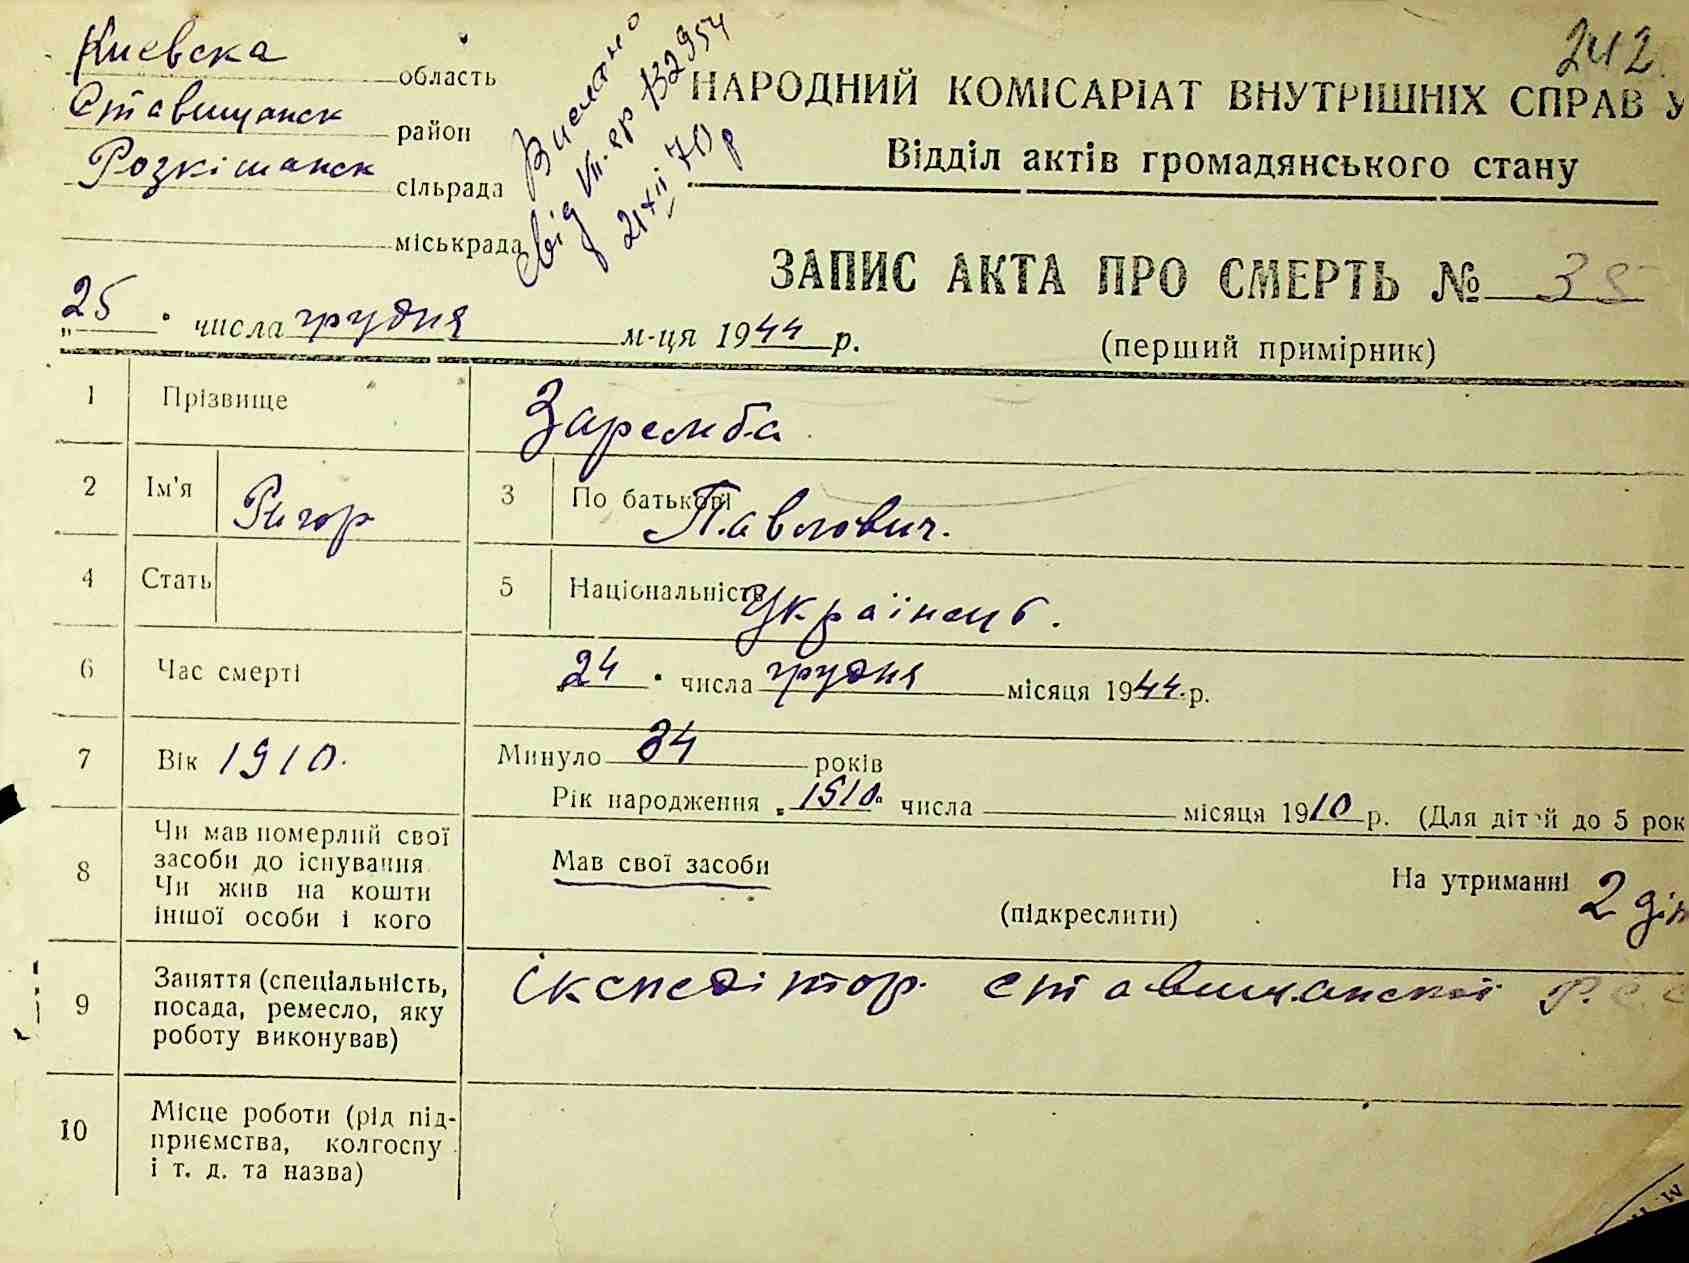 242
Киевска область
Ставищанск район
Розкішанск сільрада
міськрада
Вислано
свід VII-ер 132954
21 XII 70 р
НАРОДНИЙ КОМІСАРІАТ ВНУТРІШНІХ СПРАВ У
Відділ актів громадянського стану
ЗАПИС АКТА ПРО СМЕРТЬ № 35
(перший примірник)
„25" числа грудня м-ця 1944 р.
1 Прізвище Заремба
2 Ім'я Ригор 3 По батькові Павлович.
4 Стать 5 Національність Українець.
6 Час смерті „24" числа грудня місяця 1944 р.
7 Вік 1910. Минуло 34 років
Рік народження „1910" числа місяця 1910 р. (Для дітей до 5 рок
8 Чи мав померлий свої
засоби до існування
Чи жив на кошти
іншої особи і кого
Мав свої засоби На утриманні 2 діт
(підкреслити)
9 Заняття (спеціальність,
посада, ремесло, яку
роботу виконував)
Ікспедітор Ставищанскої Р.С.С
10 Місце роботи (рід під-
приємства, колгоспу
і т. д. та назва)